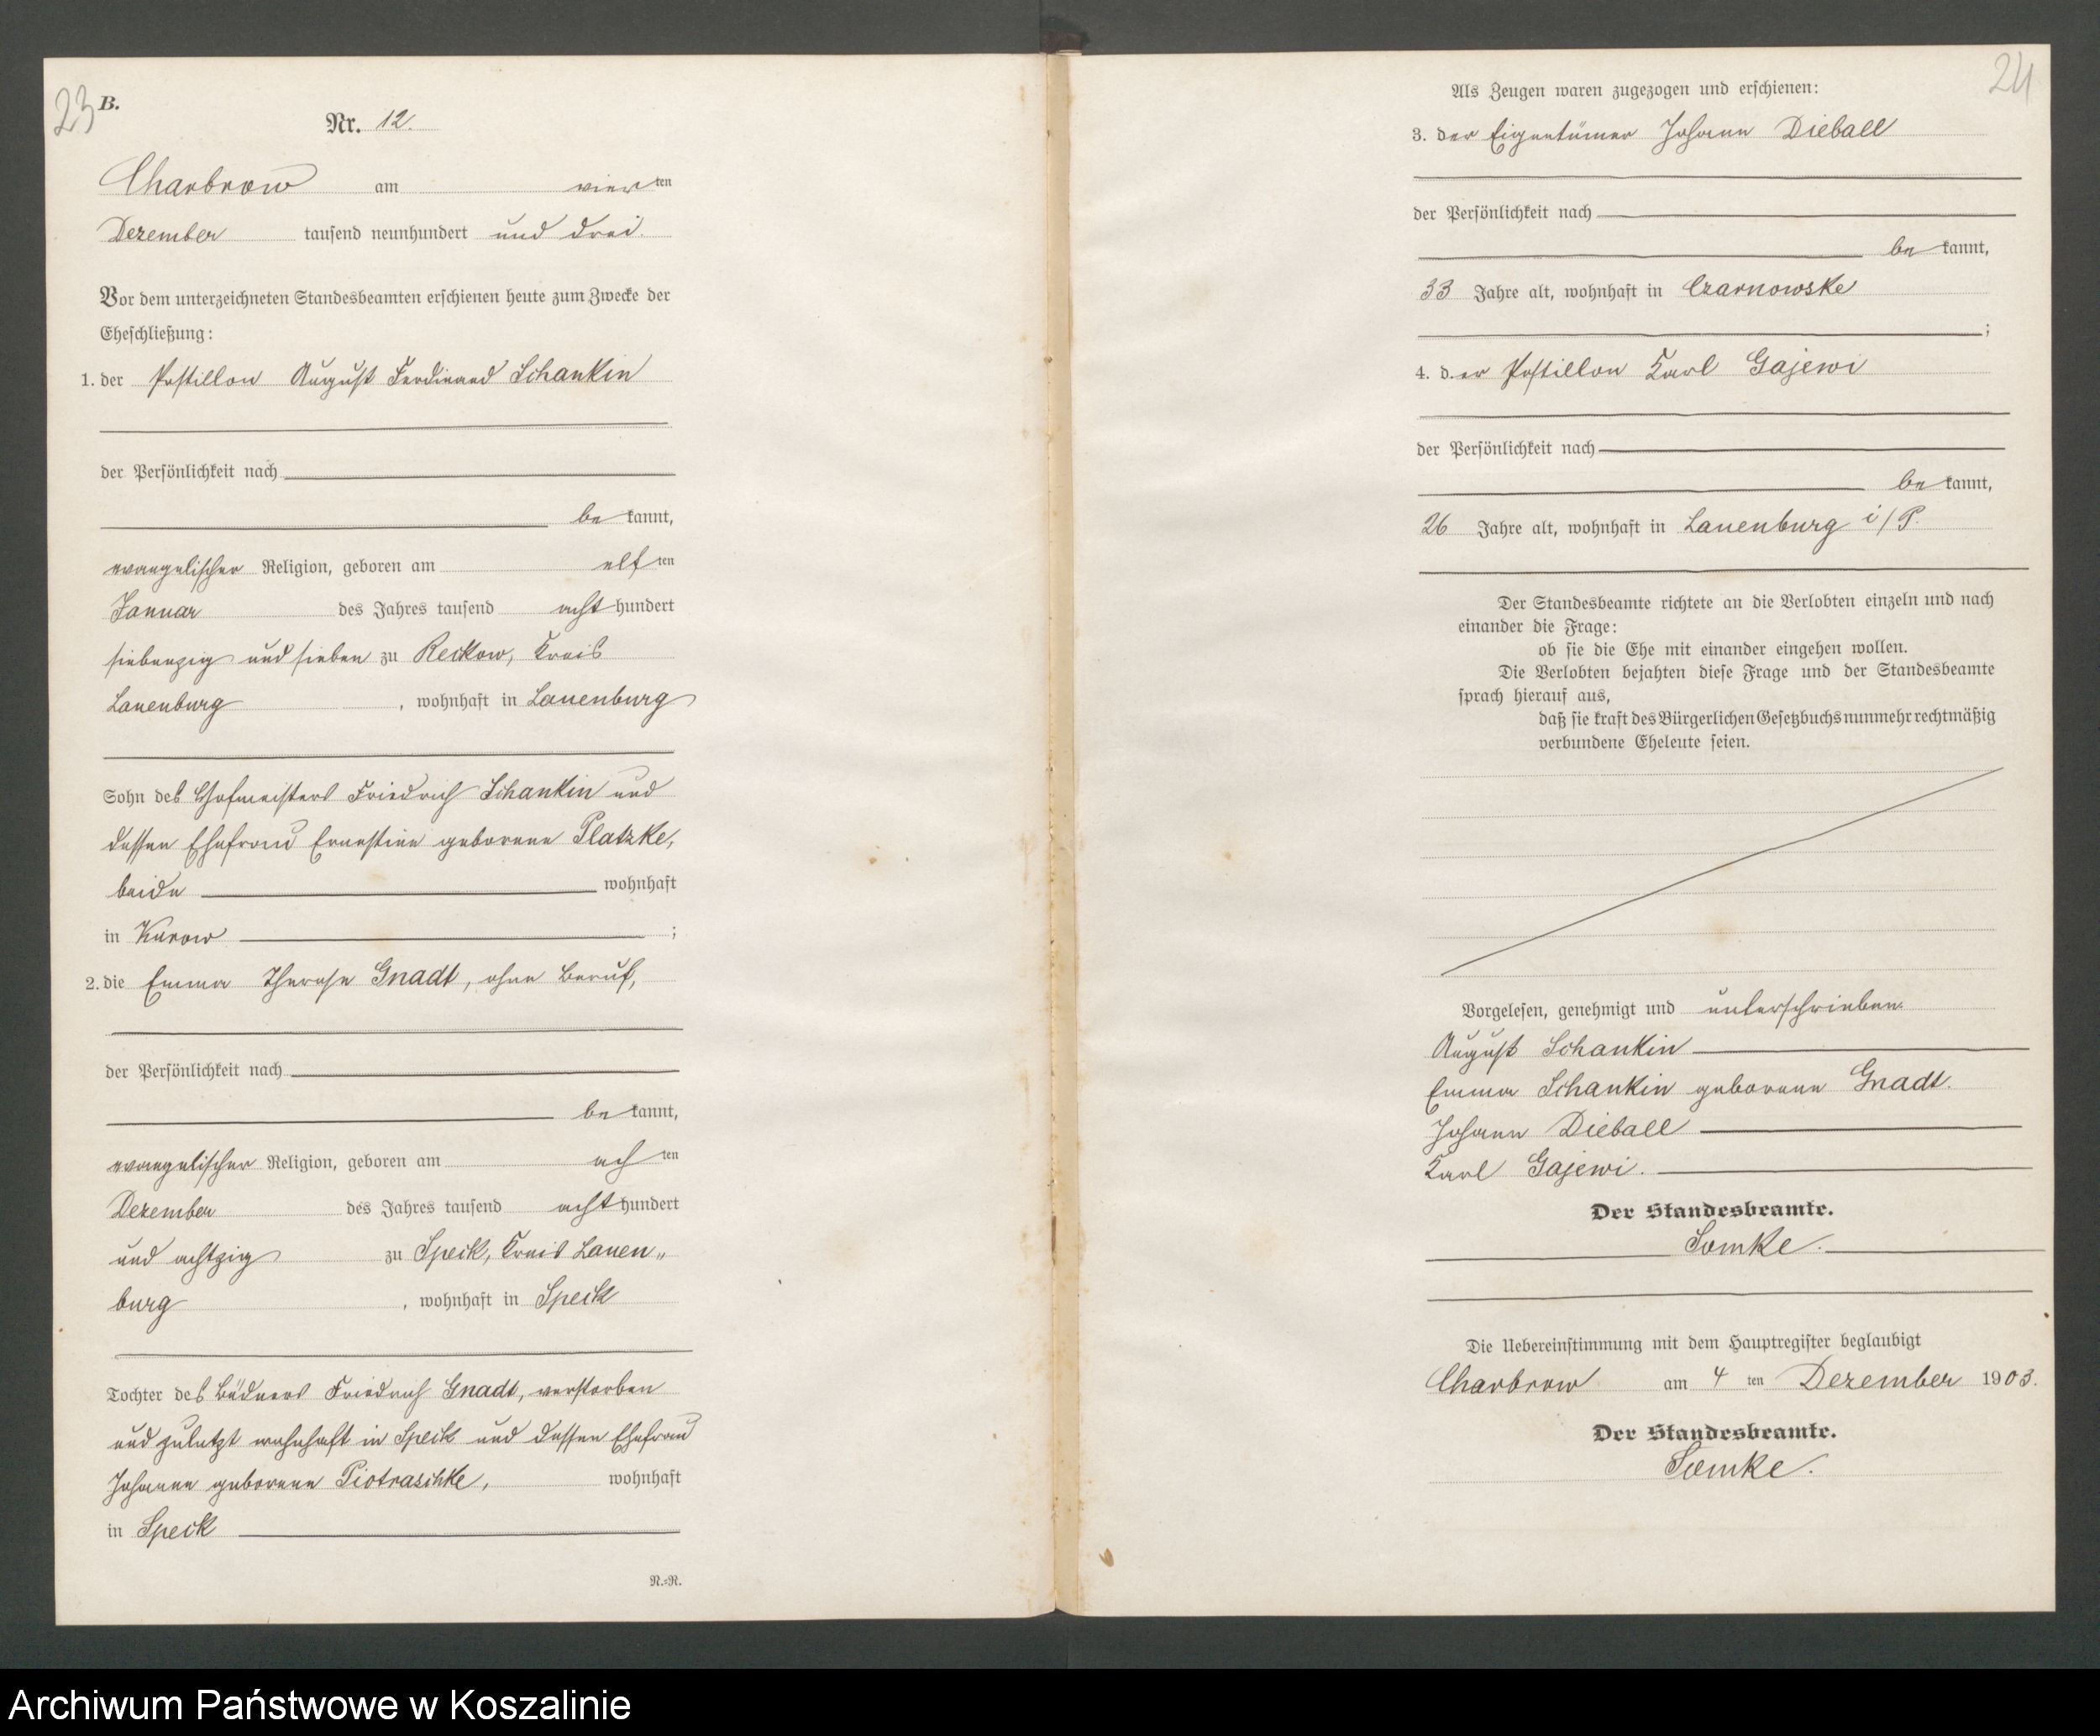 23
B.
Nr. 12.
Charbrow am vierten
Dezember tausend neunhundert und drei.
Vor dem unterzeichneten Standesbeamten erschienen heute zum Zwecke der
Eheschließung:
1. der Postillon August Ferdinand Schankin
der Persönlichkeit nach
bekannt,
evangelischer Religion, geboren am elften
Januar des Jahres tausend achthundert
siebenzig und sieben zu Reckow, Kreis
Lauenburg, wohnhaft in Lauenburg
Sohn des Hofmeisters Friedrich Schankin und
dessen Ehefrau Ernestine geborene Platzke,
beide wohnhaft
in Kurow;
2. die Emma Therese Gnadt, ohne Beruf,
der Persönlichkeit nach
bekannt,
evangelischer Religion, geboren am achten
Dezember des Jahres tausend achthundert
und achtzig zu Speck, Kreis Lauen„
burg, wohnhaft in Speck
Tochter des Büdners Friedrich Gnadt, verstorben
und zuletzt wohnhaft in Speck und dessen Ehefrau
Johanne geborene Piotraschke, wohnhaft
in Speck
N.=R.
24
Als Zeugen waren zugezogen und erschienen:
3. der Eigentümer Johann Dieball
der Persönlichkeit nach
bekannt,
33 Jahre alt, wohnhaft in Czarnowske
;
4. der Postillon Karl Gajewi
der Persönlichkeit nach
bekannt,
26 Jahre alt, wohnhaft in Lauenburg i/P.
Der Standesbeamte richtete an die Verlobten einzeln und nach
einander die Frage:
ob sie die Ehe mit einander eingehen wollen.
Die Verlobten bejahten diese Frage und der Standesbeamte
sprach hierauf aus,
daß sie kraft des Bürgerlichen Gesetzbuchs nunmehr rechtmäßig
verbundene Eheleute seien.
Vorgelesen, genehmigt und unterschrieben.
August Schankin
Emma Schankin geborene Gnadt.
Johann Dieball
Karl Gajewi.
Der Standesbeamte.
Somke.
Die Uebereinstimmung mit dem Hauptregister beglaubigt
Charbrow am 4ten Dezember 1903.
Der Standesbeamte.
Somke.
Archiwum Państwowe w Koszalinie